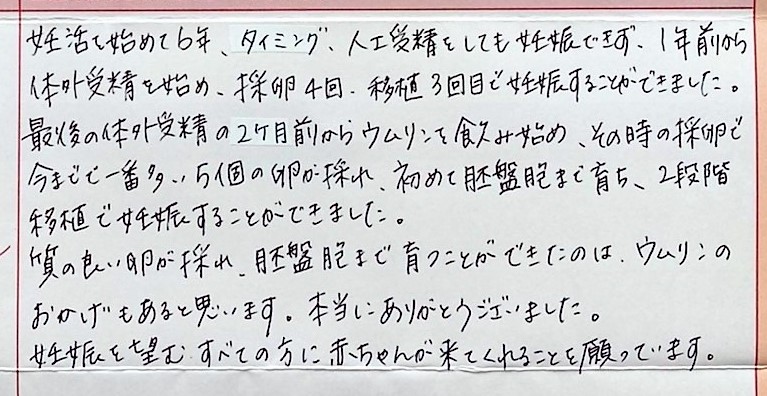 妊活を始めて6年、タイミング、人工受精をしても妊娠できず、1年前から
体外受精を始め、採卵4回、移植3回目で妊娠することができました。
最後の体外受精の2ケ月前からウムリンを飲み始め、その時の採卵で
今までで一番多い5個の卵が採れ、初めて胚盤胞まで育ち、2段階
移植で妊娠することができました。
質の良い卵が採れ、胚盤胞まで育つことができたのは、ウムリンの
おかげもあると思います。本当にありがとうございました。
妊娠を望むすべての方に赤ちゃんが来てくれることを願っています。